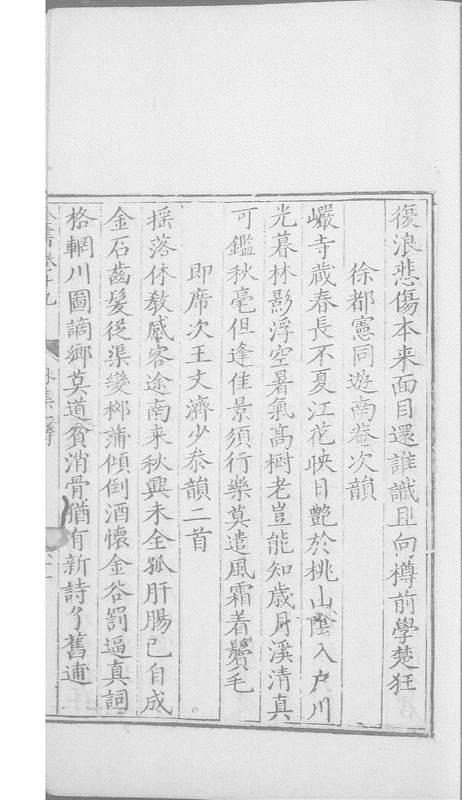 復浪悲傷本来面目還誰識且向樽前學楚狂
徐都憲同遊南菴次韻
巖寺藏春長不夏江花映日艷於桃山陰入户川
光暮林影浮空暑氣髙樹老豈能知歲月溪清真
可鑑秋毫但逢佳景須行樂莫遣風霜着鬢毛
即席次王文濟少叅韻二首
揺落休教感客途南来秋興未全孤肝腸已自成
金石齒髮從渠變栁蒲傾倒酒懷金谷罰逼真詞
格輞川圖謫鄉莫道貧消骨猶有新詩了舊逋